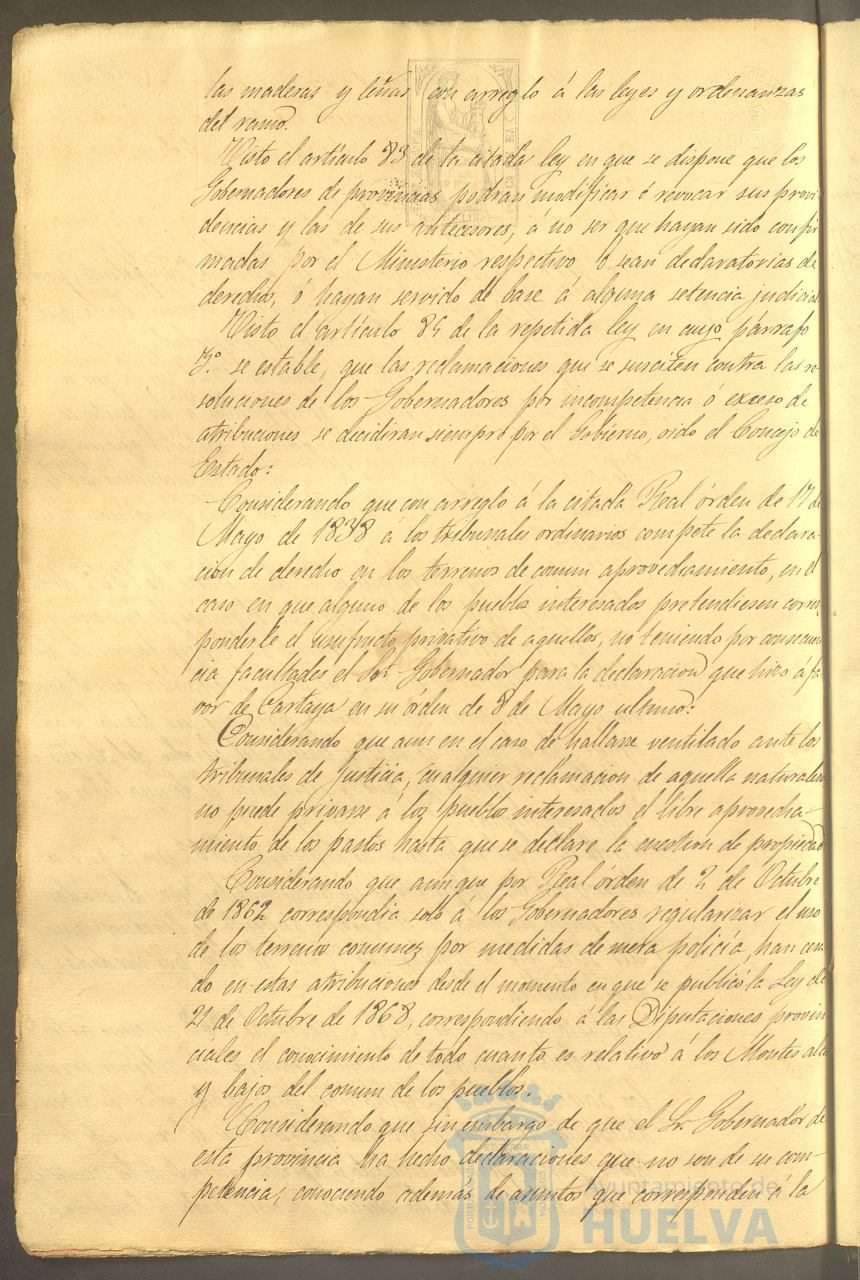 las maderas y leñas con arreglo á las leyes y ordenanzas
del ramo.
Visto el artículo 83 de la citada ley en que se dispone que los
Gobernadores de provincias podran modificar ó revocar sus provi-
dencias y las de sus antecesores, á no ser que hayan sido confir
madas por el Ministerio respectivo, ó sean declaratorias de
derechos, ó hayan servido de base á alguna setencia judicial
Visto el artículo 84 de la repetida ley en cuyo párrafo
3.º se estable, que las reclamaciones que se susciten contra las re
soluciones de los Gobernadores por incompetencia ó exceso de
atribuciones se decidiran siempre por el Gobierno, oido el Concejo de
Estado:
Considerando que con arreglo á la citada Real órden de 17 de
Mayo de 1838 á los tribunales ordinarios compete la declara-
cion de derecho en los terrenos de comun aprovechamiento, en el
caso en que alguno de los pueblos interesados pretendiesen corres-
ponderle el usufructo privativo de aquellos, no teniendo por consecuen
cia facultades el Sor Gobernador para la declaracion que hizo á fa
vor de Cartaya en su órden de 8 de Mayo ultimo:
Considerando que aun en el caso de hallarse ventilado ante los
tribunales de Justicia, cualquier reclamacion de aquella naturaleza
no puede privarse á los pueblos interesados el libre aprovecha-
miento de los pastos hasta que se declare la cuestion de propiedad
Considerando que aunque por Real órden de 2 de Octubre
de 1862 correspondia solo á los Gobernadores regularizar el uso
de los terrenos comunes por medidas de mera policía, han cesa
do en estas atribuciones desde el momento en que se publicó la Ley de
21 de Octubre de 1868, correspondiendo á las Diputaciones provin
ciales el conocimiento de todo cuanto es relativo á los Montes altos
y bajos del comun de los pueblos.
Considerando que sin embargo de que el Sr. Gobernador de
esta provincia ha hecho declaraciones que no son de su com-
petencia, conociendo además de asuntos que corresponden á la
Ayuntamiento de
HUELVA